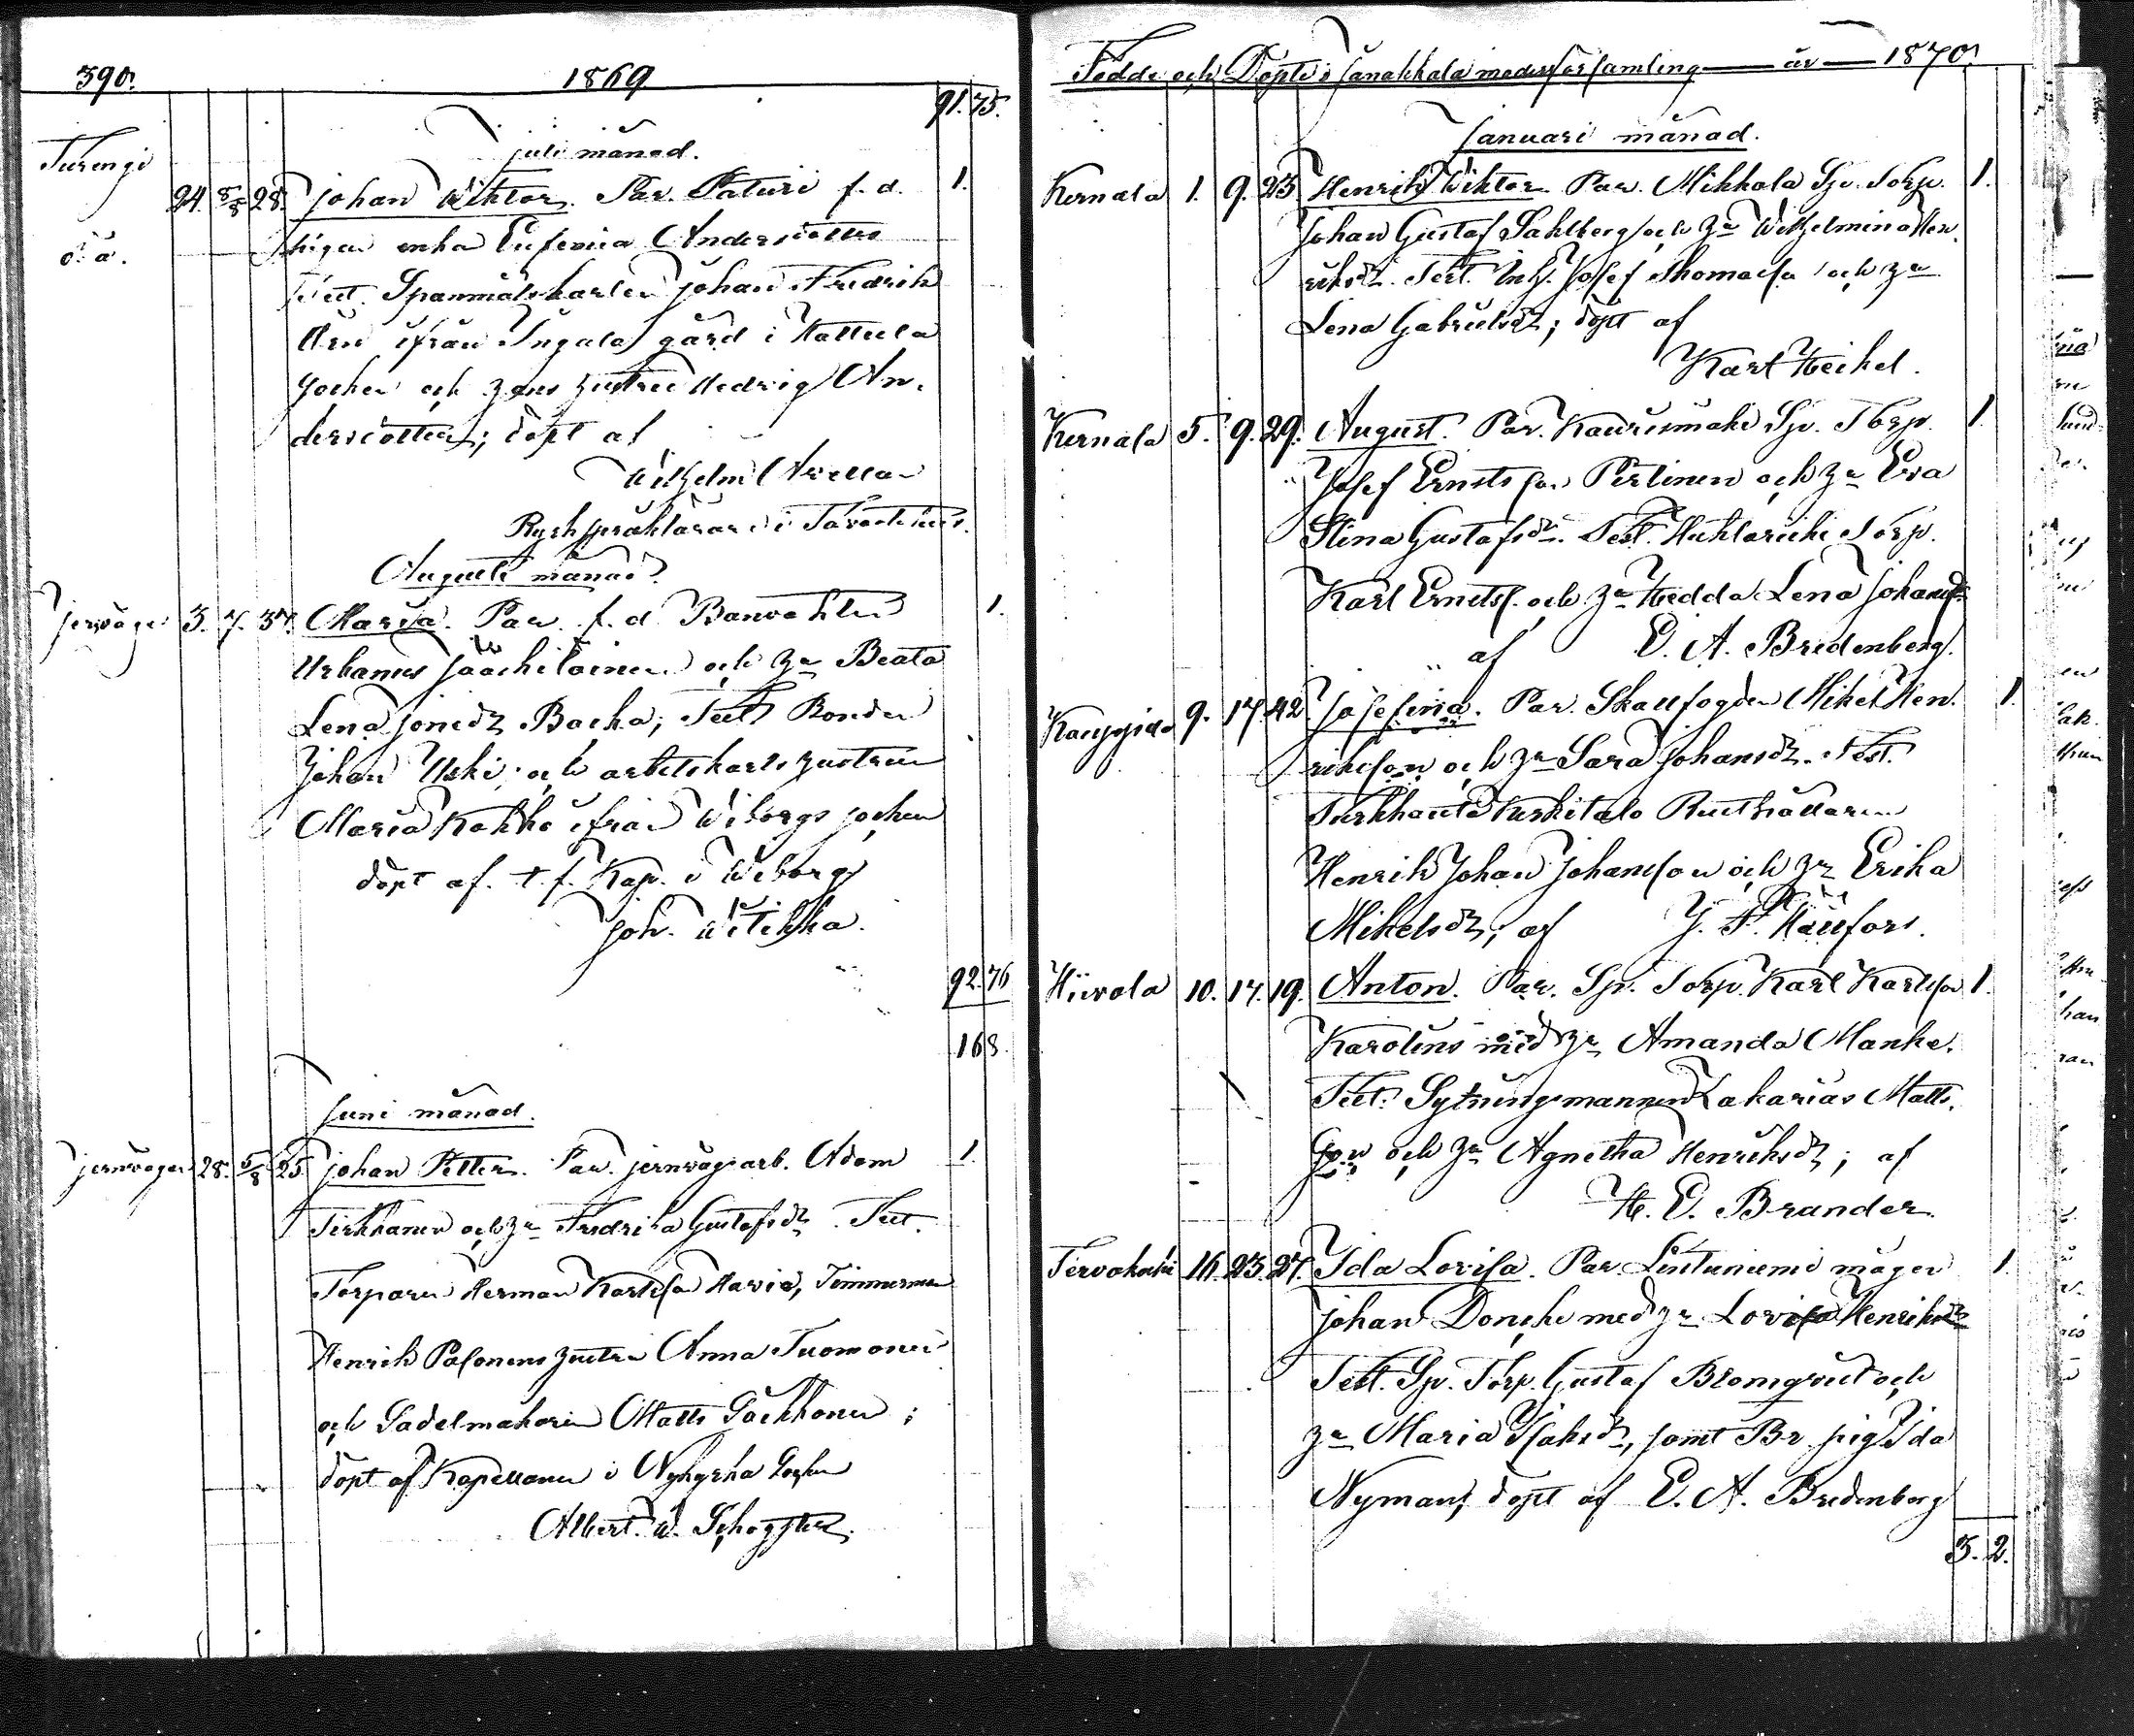 390.
1869
91. 75.
Juli månad.
Turengi
o. ä.
24. 8/8 28. Johan Wiktor. Par. Paturi f. d. 1.
pigan enka Eufemia Andersdotter
Test. Spanmålskarlen Johan Fredrik
ifrån Ingala gård i Hattula
Socken och hans hustru Hedvig An-
dersdotter; döpt af
Wilhelm Arellan
Rysk språklärare i Tavastehus.
Augusti månad.
Jernväge 3. 7. 37. Maria. Par. f. d. Banvakten 1.
Urbanus Jääskeläinen och h:u Beata
Lena Jonsdr Backa; Test. Bonden
Johan Uski; och arbetskarls hustrun
Maria Kokko ifrån Wiborgs socken
döpt af. t. f. Kap. i Wiborg
Joh. Witikka.
92. 76
168.
Juni månad.
Jernvägen 28. 5/8 25 Johan Petter. Par. jernvägsarb. Adam 1.
Tirkkanen och h:u Fredrika Gustafsdr. Test.
Torparen Herman Karlsson Harvia, Timmerman
Henrik Pasonens hustru Anna Tuomonen
och Sadelmakaren Matts Päckkonen;
döpt af Kapellanen i Nykyrka Socken
Albert. W.
Födde och Döpte i Janakkala moderförsamling år 1870.
Januari månad.
Kernala 1. 9. 23 Henrik Wiktor. Par. Mikkola Sjv. Torp. 1.
Johan Gustaf Sahlberg och h:u Wilhelmina Hen-
riksdr. Test. Inh. Josef Thomasson och h:u
Lena Gabrielsdr; döpt af
Karl Heikel.
Kernala 5. 9. 29. August. Par. Kaurismäki Sjv. Torp. 1.
Josef Ernstsson Pertinen och h:u Eva
Stina Gustafsdr. Test. Huhtariihi Torp.
Karl Ernstss. och h:u Hedda Lena Johansdr
af E. A. Bredenberg.
9. 17. 42 Josefina. Par. Skallfogden Mikel Hen- 1.
riksson och h:u Sara Johansdr. Test.
Turkhauta Kurkitalo Rusthållaren
Henrik Johan Johansson och h:u Erika
Mikelsdr; af J. F. Hällfors.
Hiivola 10. 17. 19. Anton. Par. Sjv. Torp. Karl Karlsson 1.
Karolins med h:u Amanda Manke.
Test. Sytningsmannen Zakarias Matts-
son och h:u Agnetha Henriksdr; af
H. E. Brander.
Tervakoski 16. 23. 27. Ida Lovisa. Par. Lintuniemi mågen 1.
Johan Donske med h:u Lovisa Henriksdr
Test. Sjv. Torp. Gustaf Blomqvist och
h:u Maria Isaksdr, samt Br. pig. Ida
Nyman; döpt af E. A. Bredenberg
3. 2.